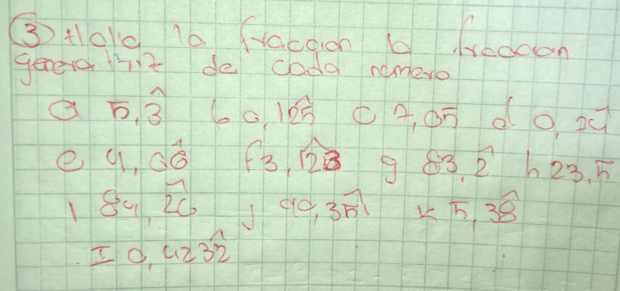 ③ Halla la fraccion la fraccion
generatriz de cada numero
a 5,3̂ b 0,125̂ c 7,05 d 0,24̂
e 4,06̂ f 3,123̂ g 83,2̂ h 23,5
i 84,26̂ j 90,351̂ k 5,38̂
I 0,4232̂